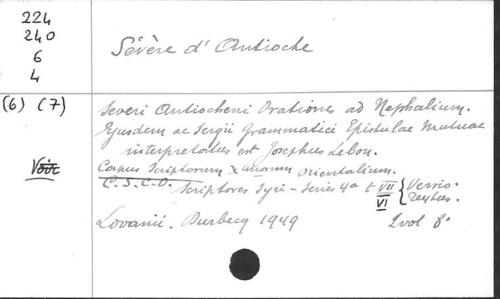 224
240
6
4
Sévère d'Antioche
(6) (7)
Severi Antiocheni Orationes ad Nephalium.
Ejusdem ac Sergii Grammatici Epistulae Mutuae
interpretatus est Josephus Lebon.
Voir
Corpus Scriptorum Xanorum Orientalium.
C.S.C.O. Scriptores Syri - Series 4a t VII { Versio.
VI Textus.
Lovanii. Durbecq 1949 2vol 8°